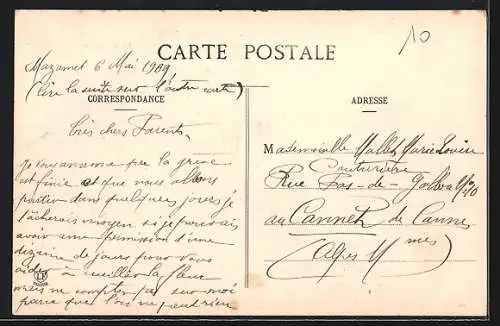 10
CARTE POSTALE
Mazamet 6 Mai 1909
(lire la suite sur l'autre carte)
CORRESPONDANCE
ADRESSE
très chers Parents,
Je vous annonce que la grève
est finie et que nous allons
partir dans quelques jours je
tâcherais moyen si je pouvais
avoir une permission d'une
dizaine de jours pour vous
aider à cueillir la fleur
mais ne compter pas sur moi
parce que l'on ne peut rien
Mademoiselle Mallet Marie Louise
Couturière
Rue
au Cannet de Cannes
(Alpes Mmes)
LF